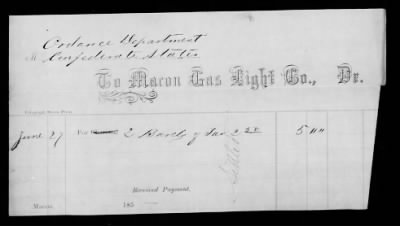 Ordance Department
M Confederate States
To Macon Gas Light Co., Dr.
Telegraph Steam Press
June 27 For 2 Barrels of Tar 2 50 5 "
Received Payment,
Macon, 185